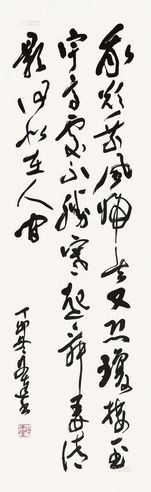 我欲乘风归去又恐琼楼玉
宇高处不胜寒起舞弄清
影何似在人间
丁卯冬